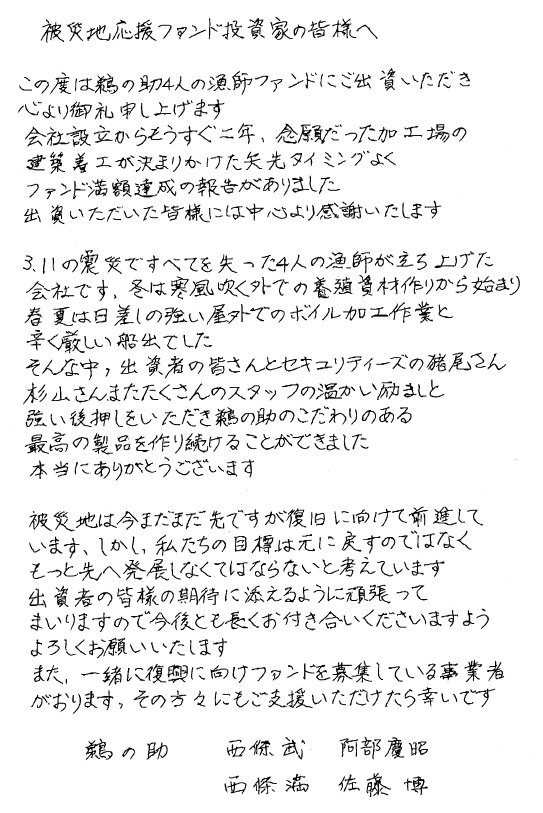 被災地応援ファンド投資家の皆様へ
この度は鵜の助4人の漁師ファンドにご出資いただき
心より御礼申し上げます
会社設立からもうすぐ二年、念願だった加工場の
建築着工が決まりかけた矢先タイミングよく
ファンド満額達成の報告がありました
出資いただいた皆様には中心より感謝いたします
3.11の震災ですべてを失った4人の漁師が立ち上げた
会社です、冬は寒風吹く外での養殖資材作りから始まり
春夏は日差しの強い屋外でのボイル加工作業と
辛く厳しい船出でした
そんな中、出資者の皆さんとセキュリティーズの猪尾さん
杉山さんまたたくさんのスタッフの温かい励ましと
強い後押しをいただき鵜の助のこだわりのある
最高の製品を作り続けることができました
本当にありがとうございます
被災地は今まだまだ先ですが復旧に向けて前進して
います、しかし、私たちの目標は元に戻すのではなく
もっと先へ発展しなくてはならないと考えています
出資者の皆様の期待に添えるように頑張って
まいりますので今後とも長くお付き合いくださいますよう
よろしくお願いいたします
また、一緒に復興に向けファンドを募集している事業者
がおります、その方々にもご支援いただけたら幸いです
鵜の助 西條武 阿部慶昭
西條満 佐藤博